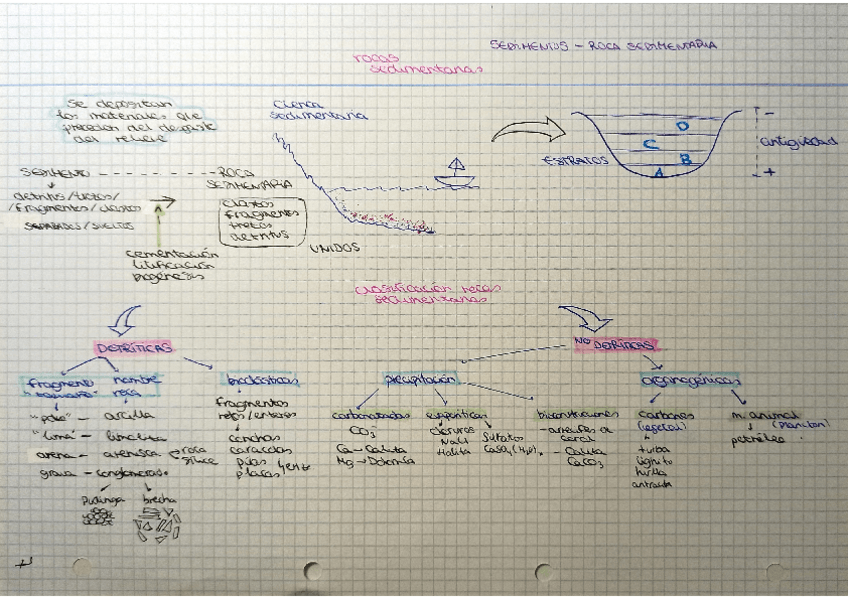 SEDIMENTOS - ROCA SEDIMENTARIA
rocas
sedimentarias
Se depositan
los materiales que
proceden del desgaste
del relieve
cuenca
sedimentaria
ESTRATOS
D
C
B
A
-
antigüedad
+
SEDIMENTO - - - - - - - ROCA
SEDIMENTARIA
detritus/trozos/
/fragmentos/clastos
SEPARADOS/SUELTOS
clastos
fragmentos
trozos
detritus
UNIDOS
cementación
litificación
clasificación rocas
sedimentarias
DETRÍTICAS
fragmento
nombre
roca
"polvo" - arcilla
"limo" - limolita
arena - arenisca
roca
grava - conglomerados
pudinga
brecha
bioclásticas
fragmentos
rotos/enteros
conchas
caracolas
púas
placas
NO DETRÍTICAS
precipitación
carbonatadas
CO3
Ca - Calcita
Mg - Dolomía
evaporíticas
cloruros
NaCl
Halita
Sulfatos
bioconstrucciones
- arrecifes de
coral
- Calcita
CaCO3
organogénicas
carbones
(vegetal)
turba
lignito
hulla
antracita
m. animal
(plancton)
petróleo